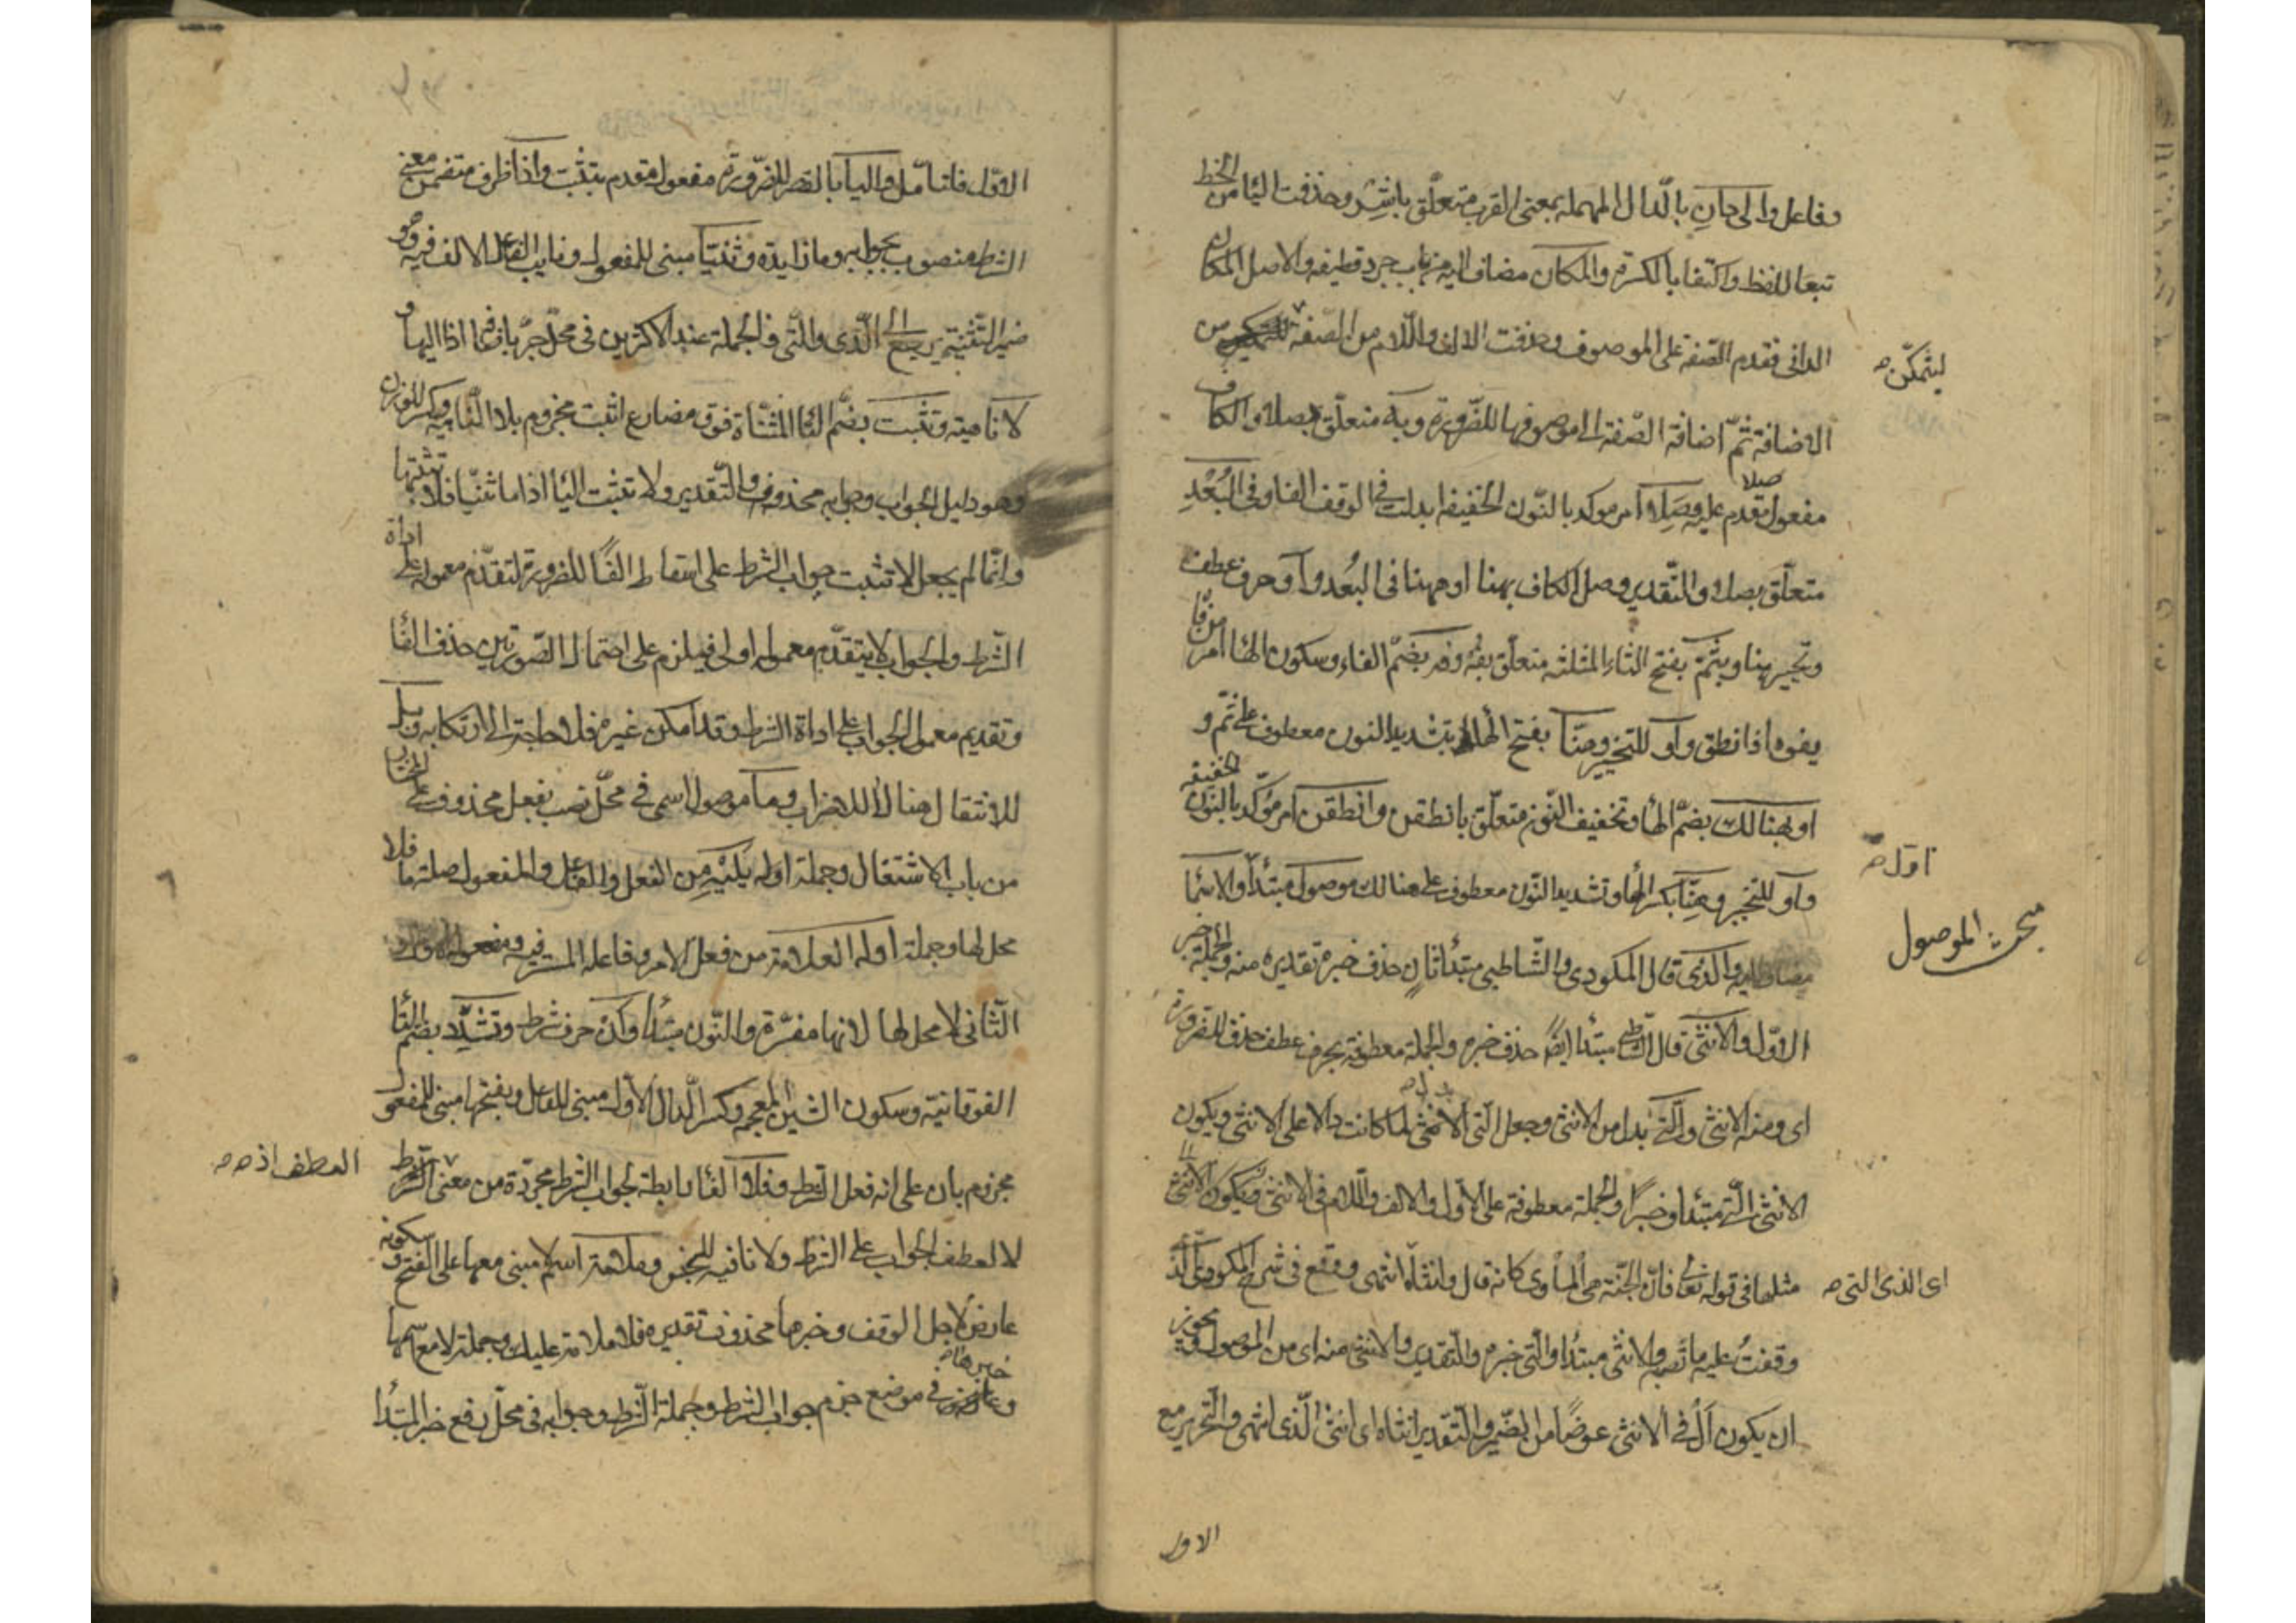 وفاعل والى دان بالدال المهملة بمعنى القرب متعلق باشر وحذفت اليا من الخط
تبعا للفظ واكتفا بالكسرة والمكان مضاف اليه من باب جرد قطيفة والاصل المكان
الدانى فقدم الصفة على الموصوف وحذفت الالف واللام من الصفة من
ليتمكن صح
الاضافة ثم اضافة الصفة الى موصوفها للضرورة وبه متعلق بصلا والكاف
مفعول مقدم عليه وصلا امر موكد بالنون الخفيفة ابدلت فى الوقف الفا وفى البعد
صلا
متعلق بصلا والتقدير وصل الكاف بهنا او ههنا فى البعد واو حرف عطف
وتخيير هنا وبثم بفتح الثاء المثلثة متعلق بفه وفه بضم الفاء وسكون الها امر من فاه
يفوه اذا نطق واو للتخيير وهنا بفتح الها وتشديد النون معطوف على ثم و
او بهنالك بضم الها وتخفيف النون متعلق بانطقن وانطقن امر موكد بالنون الخفيفة
واو للتخيير وهنا بكسر الها وتشديد النون معطوف على هنالك موصول مبتدأ والاسما
اول صح
مبحث الموصول
مضاف اليه والذى قال المكودى والشاطبى مبتدأ ثان حذف خبره تقديره منه والجملة خبر
الاول والانثى قال الشاطبى مبتدا ايضا حذف خبره والجملة معطوفة بحرف عطف حذف للضرورة
اى ومنه الانثى والتى بدل من الانثى وجعل التى الانثى لما كانت دالة على الانثى ويكون
بدل صح
الانثى التى مبتدأ وخبرا والجملة معطوفة على الاول والالف واللام فى الانثى ويكون الانثى
مثلها فى قوله تعالى فان الجنة هى المأوى كانه قال وانثاه انتهى ووقع فى شرح المكودى الذى
اى الذى التى صح
وقفت عليه ما نصه والانثى مبتدأ والتى خبره والتقدير والانثى منه اى من الموصول ويجوز
ان يكون ال فى الانثى عوضا من الضمير والتقدير انثاه اى انثى الذى انتهى والتحرير مع
الاول
الاول فاتامل واليا بالقصر للضرورة مفعول مقدم بتثبت واذا ظرف متضمن معنى
الشرط منصوب بجوابه وما زايدة وثنيا مبنى للمفعول ونايب الفاعل الالف فيه وهو
ضمير التثنية يرجع الى الذى والتى والجملة عند الاكثرين فى محل جر باضافة اذا اليها و
لا ناهية وتثبت بضم التا المثناة فوق مضارع اثبت مجزوم بلا الناهية وكسر للوزن
وهو دليل الجواب وجوابه محذوف والتقدير ولا تثبت اليا اذا ما ثنيا فلا تثبتها
وانما لم يجعل لا تثبت جواب الشرط على اسقاط الفا للضرورة لتقدم معموله على اداة
الشرط والجواب لا يتقدم معموله اولى فيلزم على احتمال الصورتين حذف الفا
وتقديم معمول الجواب على اداة الشرط وقد امكن غيره فلا حاجة الى ارتكابه وبل
للانتقال هنا لا للاضراب وما موصول اسمى فى محل نصب بفعل محذوف على المختار
من باب الاشتغال وجملة اوله تليه من الفعل والفاعل والمفعول صلة ما فلا
محل لها وجملة اوله العلامة من فعل الامر وفاعله المستتر فيه ومفعوله الاول و
الثانى لا محل لها لانها مفسرة والنون مبتدأ وان حرف شرط وتشدد بضم التا
الفوقانية وسكون الشين المعجمة وكسر الدال الاولى مبنى للفاعل وبفتحها مبنى للمفعول
مجزوم بان على انه فعل الشرط وفلا الفا رابطة لجواب الشرط مجردة من معنى
العطف اذ صح
لا لعطف الجواب على الشرط ولا نافية للجنس وملامة اسم لا مبنى معها على الفتح وسكونه
عارض لاجل الوقف وخبرها محذوف تقديره فلا ملامة عليك وجملة لا مع اسمها
وخبرها صح فى موضع جزم جواب الشرط وجملة الشرط وجوابه فى محل رفع خبر المبتدأ